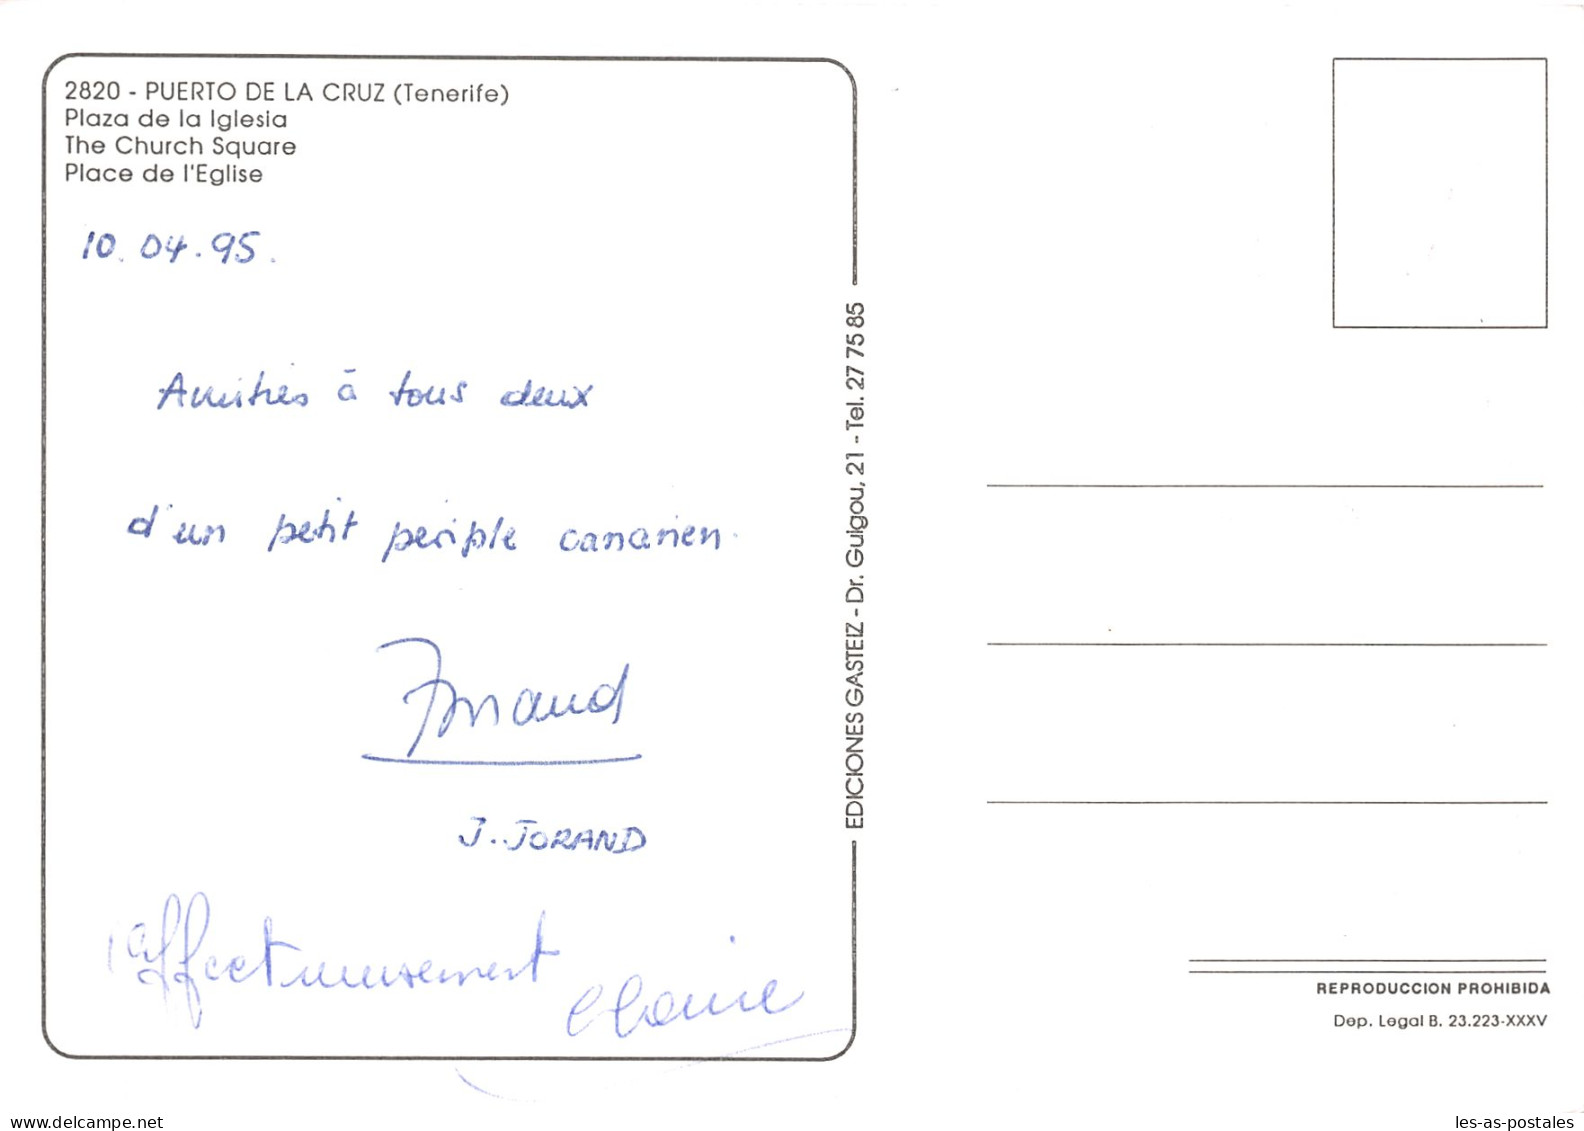 2820 - PUERTO DE LA CRUZ (Tenerife)
Plaza de la Iglesia
The Church Square
Place de l'Eglise
10.04.95.
Amitiés à tous deux
d'un petit périple canarien.
J. JORAND
affectueusement
EDICIONES GASTEIZ - Dr. Guigou, 21 - Tel. 27 75 85
REPRODUCCION PROHIBIDA
Dep. Legal B. 23.223-XXXV
www.delcampe.net
les-as-postales